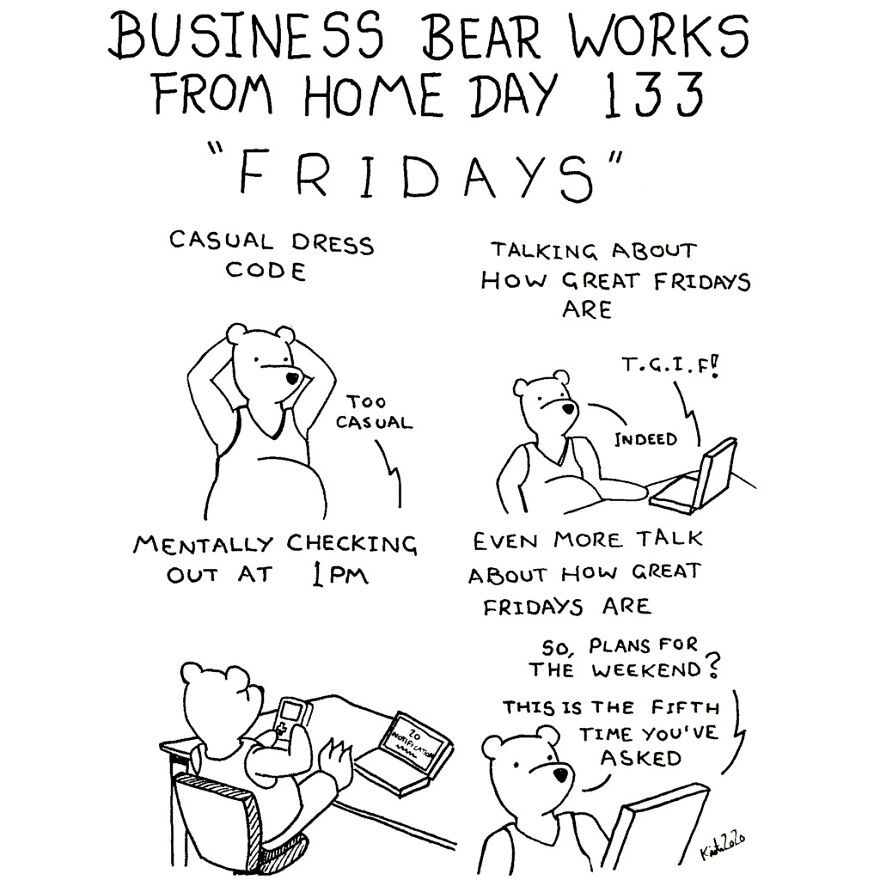 BUSINESS BEAR WORKS
FROM HOME DAY 133
"FRIDAYS"
CASUAL DRESS
CODE
TOO
CASUAL
TALKING ABOUT
HOW GREAT FRIDAYS
ARE
T.G.I.F!
INDEED
MENTALLY CHECKING
OUT AT 1PM
20
NOTIFICATIONS
EVEN MORE TALK
ABOUT HOW GREAT
FRIDAYS ARE
SO, PLANS FOR
THE WEEKEND?
THIS IS THE FIFTH
TIME YOU'VE
ASKED